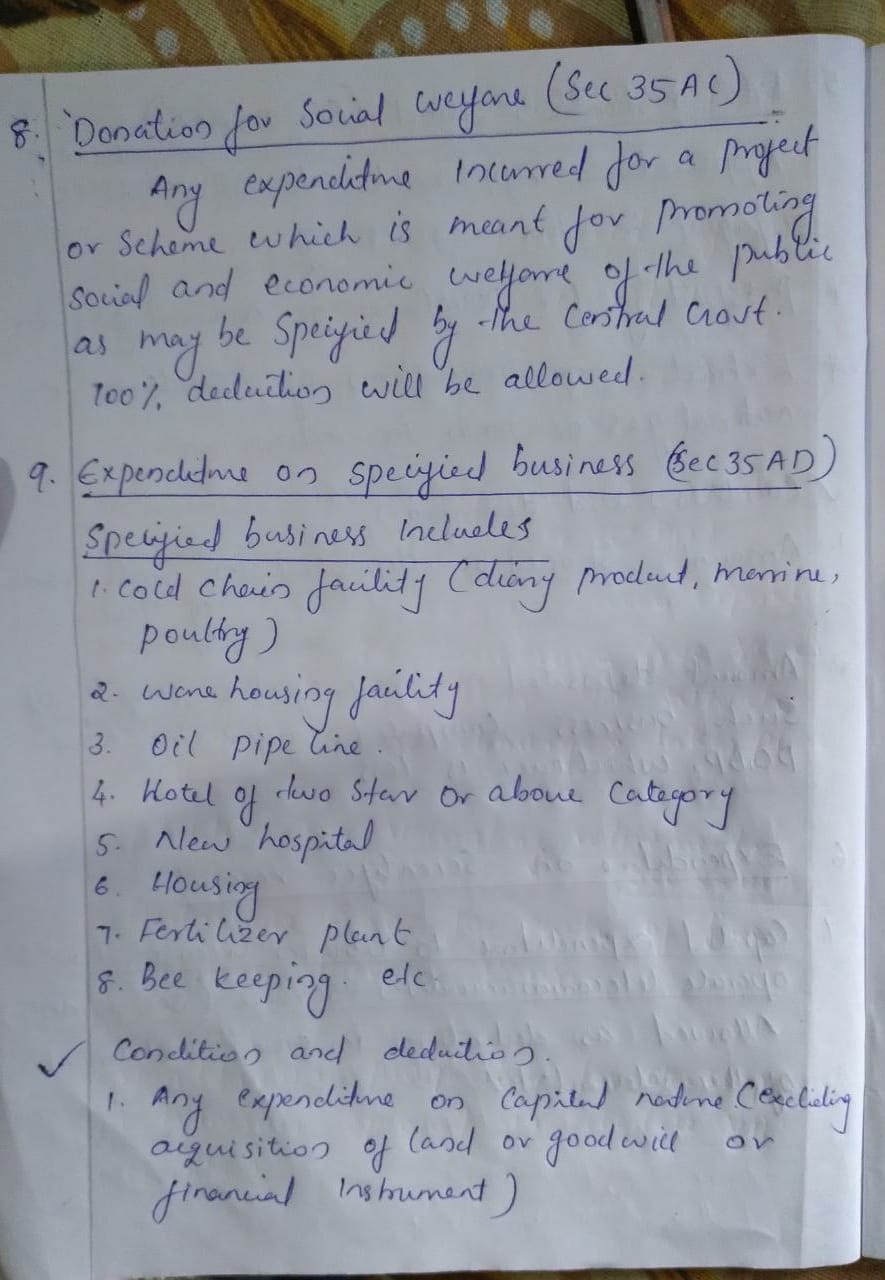 8. Donation for Social Welfare (Sec 35 AC)
Any expenditure Incurred for a project
or Scheme which is meant for promoting
Social and economic welfare of the public
as may be Specified by the Central Govt.
100% deduction will be allowed.
9. Expenditure on specified business (Sec 35 AD)
Specified business Includes
1. Cold chain facility (diary product, marine,
poultry)
2. Ware housing facility
3. Oil pipe line.
4. Hotel of two Star or above Category
5. New hospital
6. Housing
7. Fertilizer plant
8. Bee keeping. etc.
✓ Condition and deduction.
1. Any expenditure on Capital nature (excluding
acquisition of land or goodwill or
financial Instrument)